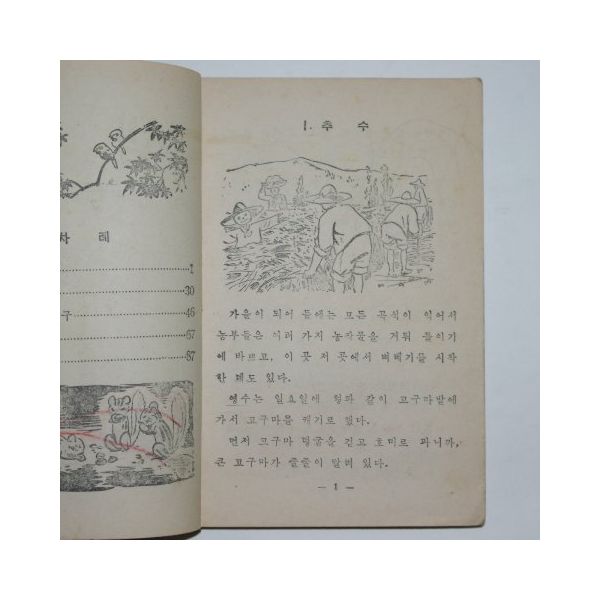 차 례
1
30
구 46
67
87
1. 추 수
가을이 되어 들에는 모든 곡식이 익어서
농부들은 여러 가지 농작물을 거둬 들이기
에 바쁘고, 이 곳 저 곳에서 벼베기를 시작
한 데도 있다.
영수는 일요일에 형과 같이 고구마밭에
가서 고구마를 캐기로 했다.
먼저 고구마 덩굴을 걷고 호미로 파니까,
큰 고구마가 줄줄이 달려 있다.
— 1 —